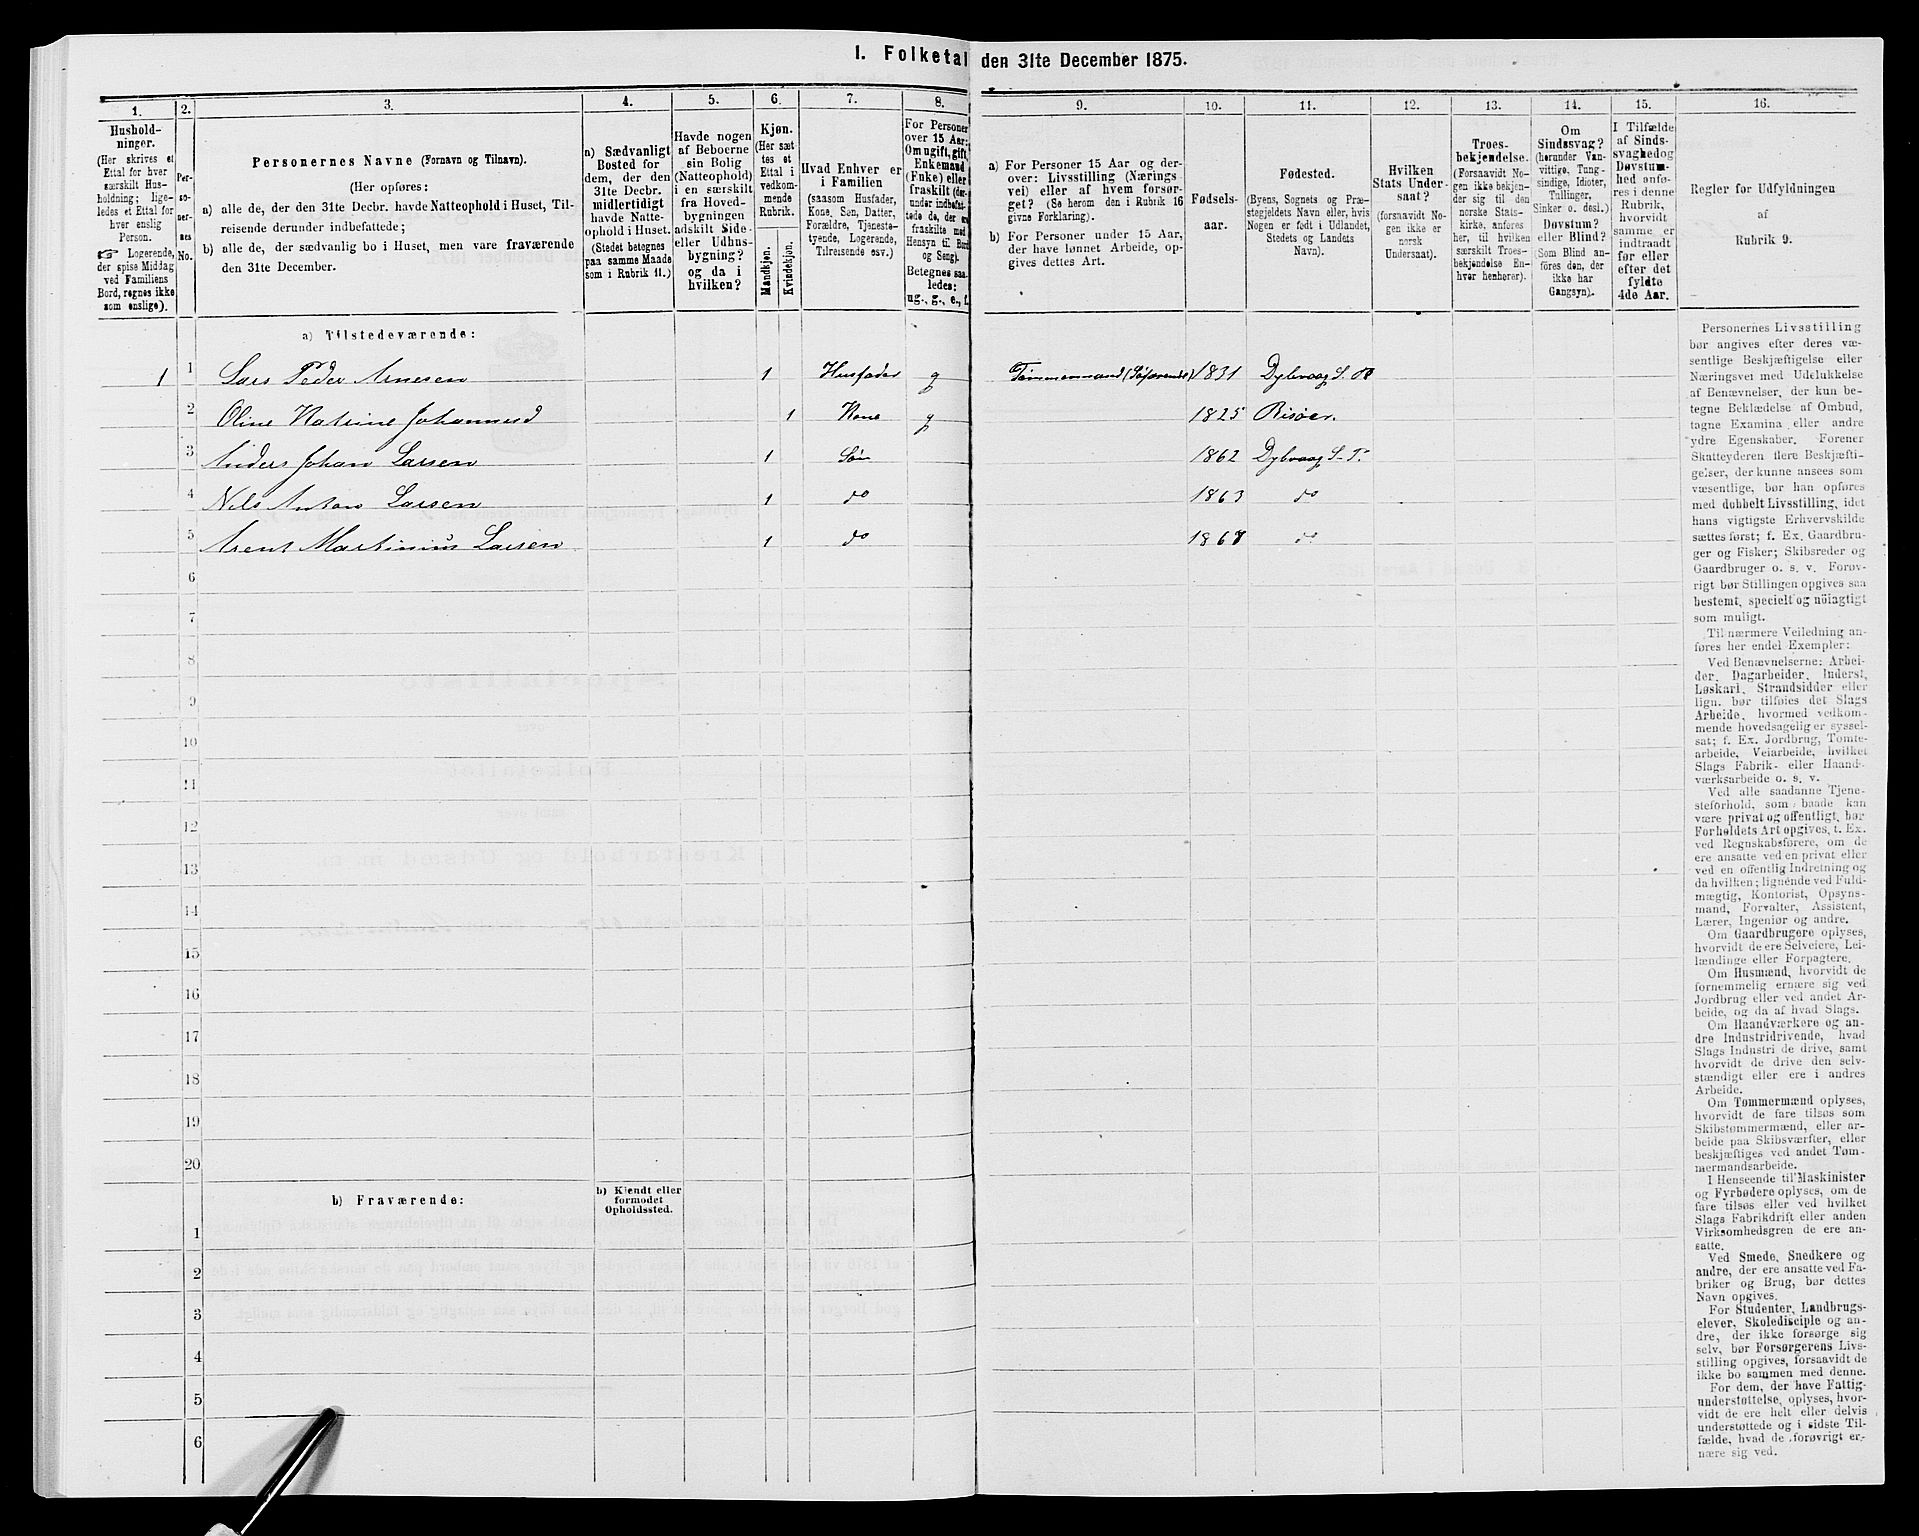 I. Folketal den 31te December 1875.
1.
2.
3.
4.
5.
6.
7.
8.
9.
10.
11.
12.
13.
14.
15.
16.
Hushold-
ninger.
(Her skrives et
Ettal for hver
særskilt Hus-
holdning; lige-
ledes et Ettal for
hver enslig
Person.
☞ Logerende,
der spise Middag
ved Familiens
Bord, regnes ikke
som enslige).
Per-
so-
nes
No.
Personernes Navne (Fornavn og Tilnavn).
(Her opføres:
a) alle de, der den 31te Decbr. havde Natteophold i Huset, Til-
reisende derunder indbefattede;
b) alle de, der sædvanlig bo i Huset, men vare fraværende
den 31te December.
a) Sædvanligt
Bosted for
dem, der den
31te Decbr.
midlertidigt
havde Natte-
ophold i Huset.
(Stedet betegnes
paa samme Maade
som i Rubrik 11.)
Havde nogen
af Beboerne
sin Bolig
(Natteophold)
i en særskilt
fra Hoved-
bygningen
adskilt Side-
eller Udhus-
bygning?
og da i
hvilken?
Kjøn.
(Her sæt
tes et
Ettal i
vedkom-
mende
Rubrik.
Mandkjøn.
Kvindekjøn.
Hvad Enhver er
i Familien
(saasom Husfader,
Kone, Søn, Datter,
Forældre, Tjeneste-
tyende, Logerende,
Tilreisende osv.)
For Personer
over 15 Aar:
Om ugift, gift,
Enkemand
(Enke) eller
fraskilt (der-
under indbefat-
tede de, der ere
fraskilte med
Hensyn til Bord
og Seng).
Betegnes saa-
ledes:
ug., g., e., f.
a) For Personer 15 Aar og der-
over: Livsstilling (Nærings
vei) eller af hvem forsør-
get? (Se herom den i Rubrik 16
givne Forklaring).
b) For Personer under 15 Aar,
der have lønnet Arbeide, op-
gives dettes Art.
Fødsels-
aar.
Fødested.
(Byens, Sognets og Præ-
stegjeldets Navn eller, hvis
Nogen er født i Udlandet,
Stedets og Landets
Navn).
Hvilken
Stats Under-
saat?
(forsaavidt No-
gen ikke er
norsk
Undersaat).
Troes-
bekjendelse.
(Forsaavidt No-
gen ikke bekjen-
der sig til den
norske Stats-
kirke, anføres
her, til hvilken
særskilt Troes-
bekjendelse En-
hver henhører).
Om
Sindssvag?
(herunder Van-
vittige, Tung-
sindige, Idioter,
Tullinger,
Sinker o. desl.)
Døvstum?
eller Blind?
(Som Blind an-
føres den, der
ikke har
Gangsyn).
I Tilfælde
af Sinds-
svaghed og
Døvstum-
hed anfø-
res i denne
Rubrik,
hvorvidt
samme er
indtraadt
før eller
efter det
fyldte
4de Aar.
Regler for Udfyldningen
af
Rubrik 9.
a) Tilstedeværende:
1 1 Lars Peder Arnesen 1 Husfader g Tømmermand (Søfarende) 1831 Dybvaag S. P.
2 Oline Katrine Johannesd 1 Kone g 1825 Risøer.
3 Anders Johan Larsen 1 Søn 1862 Dybvaag S. P.
4 Nils Anton Larsen 1 do 1863 do
5 Arent Martinius Larsen 1 do 1867 do
6
7
8
9
10
11
12
13
14
15
16
17
18
19
20
b) Fraværende:
b) Kjendt eller
formodet
Opholdssted.
1
2
3
4
5
6
Personernes Livsstilling
bør angives efter deres væ-
sentlige Beskjæftigelse eller
Næringsvei med Udelukkelse
af Benævnelser, der kun be-
tegne Beklædelse af Ombud,
tagne Examina eller andre
ydre Egenskaber. Forener
Skatteyderen flere Beskjæfti-
gelser, der kunne ansees som
væsentlige, bør han opføres
med dobbelt Livsstilling, idet
hans vigtigste Erhvervskilde
sættes først; f. Ex. Gaardbru-
ger og Fisker; Skibsreder og
Gaardbruger o. s. v. Forøv-
rigt bør Stillingen opgives saa
bestemt, specielt og nøiagtigt
som muligt.
Til nærmere Veiledning an-
føres her endel Exempler:
Ved Benævnelserne: Arbei-
der, Dagarbeider, Inderst,
Løskarl, Strandsidder eller
lign. bør tilføies det Slags
Arbeide, hvormed vedkom-
mende hovedsagelig er syssel-
sat; f. Ex. Jordbrug, Tomte-
arbeide, Veiarbeide, hvilket
Slags Fabrik- eller Haand-
værksarbeide o. s. v.
Ved alle saadanne Tjene-
steforhold, som baade kan
være privat og offentligt, bør
Forholdets Art opgives, t. Ex.
ved Regnskabsførere, om de
ere ansatte ved en privat eller
ved en offentlig Indretning og
da hvilken; lignende ved Fuld-
mægtig, Kontorist, Opsyns-
mand, Forvalter, Assistent,
Lærer, Ingeniør og andre.
Om Gaardbrugere oplyses,
hvorvidt de ere Selveiere, Lei-
lændinge eller Forpagtere.
Om Husmænd, hvorvidt de
fornemmelig ernære sig ved
Jordbrug eller ved andet Ar-
beide, og da af hvad Slags.
Om Haandværkere og an-
dre Industridrivende, hvad
Slags Industri de drive, samt
hvorvidt de drive den selv-
stændigt eller ere i andres
Arbeide.
Om Tømmermænd oplyses,
hvorvidt de fare tilsøs som
Skibstømmermænd, eller ar-
beide paa Skibsværfter, eller
beskjæftiges ved andet Tøm-
mermandsarbeide.
I Henseende til Maskinister
og Fyrbødere oplyses, om de
fare tilsøs eller ved hvilket
Slags Fabrikdrift eller anden
Virksomhedsgren de ere an-
satte.
Ved Smede, Snedkere og
andre, der ere ansatte ved Fa-
briker og Brug, bør dettes
Navn opgives.
For Studenter, Landbrugs-
elever, Skoledisciple og an-
dre, der ikke forsørge sig
selv, bør Forsørgerens Livs-
stilling opgives, forsaavidt de
ikke bo sammen med denne.
For dem, der have Fattig-
understøttelse, oplyses, hvor-
vidt de ere helt eller delvis
understøttede og i sidste Til-
fælde, hvad de forøvrigt er-
nære sig ved.